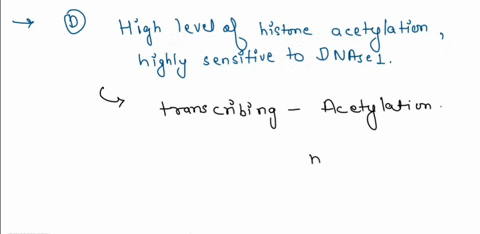 → (D) High level of histone acetylation,
highly sensitive to DNAse1.
↳ transcribing - Acetylation.
n